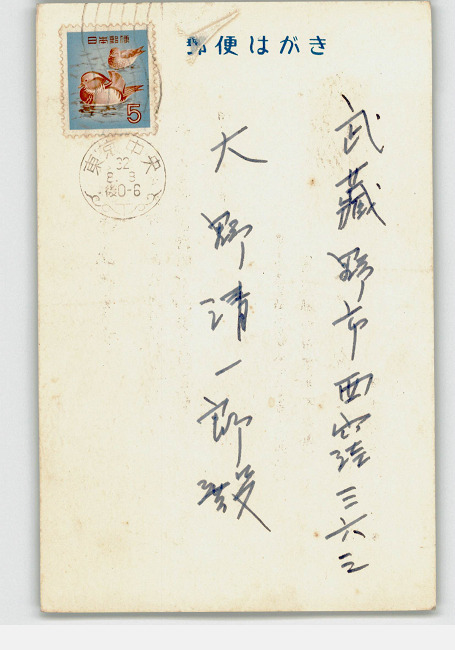 郵便はがき
日本郵便
5
東京中央
32
8.3
後0-6
武藏野市西窪三六三
大野清一郎殿